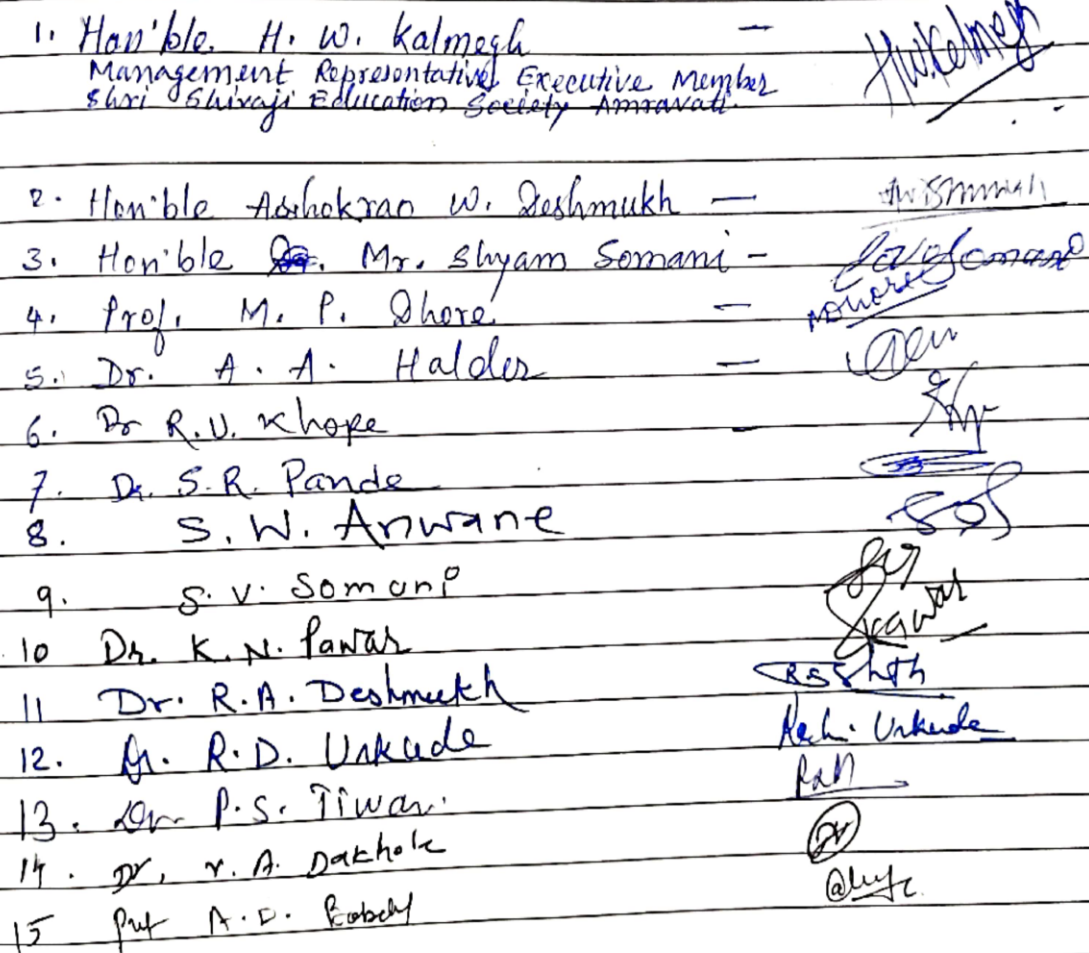 1. Hon'ble. H. W. Kalmegh —
Management Representative, Executive Member
Shri Shivaji Education Society Amravati.
2. Hon'ble Ashokrao W. Deshmukh —
3. Hon'ble Mr. Shyam Somani -
4. Prof. M. P. Dhore —
5. Dr. A. A. Halder —
6. Dr R. U. Khope -
7. Dr. S. R. Pande
8. S. W. Anwane
9. S. V. Somani
10 Dr. K. N. Pawar
11 Dr. R. A. Deshmukh
12. Dr. R. D. Urkude Urkude
13. Dr P. S. Tiwari
14. Dr. Y. A. Dakhole
15 Prof A. D.